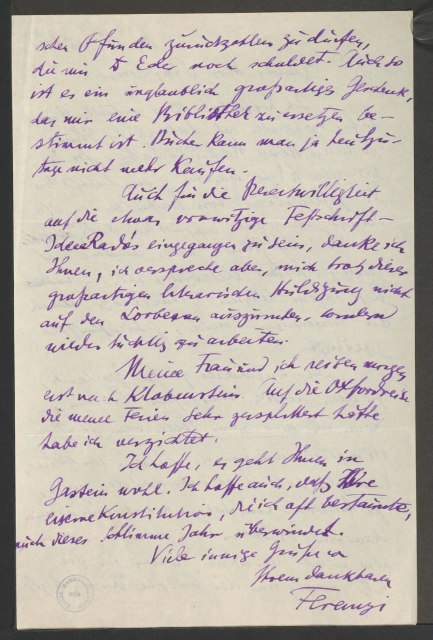 schen Pfunden zurückzahlen zu dürfen,
die mir Dr Eder noch schuldet. Auch so
ist es ein unglaublich großartiges Geschenk,
das mir eine Bibliothek zu ersetzen be-
stimmt ist. Bücher kann man ja heutzu-
tage nicht mehr kaufen.
Auch für die Bereitwilligkeit
auf die etwas vorwitzige Festschrift-
Idee Radós eingegangen zu sein, danke ich
Ihnen, ich verspreche aber, mich trotz dieser
großartigen literarischen Huldigung nicht
auf den Lorbeeren auszuruhen, sondern
wieder tüchtig zu arbeiten.
Meine Frau und ich reisen morgen
erst nach Klobenstein. Auf die Oxfordreise
die meine Ferien sehr zersplittert hätte
habe ich verzichtet.
Ich hoffe, es geht Ihnen in
Gastein wohl. Ich hoffe auch, daß Ihre
eiserne Konstitution, die ich oft bestaunte,
auch dieses schlimme Jahr überwindet.
Viele innige Grüße von
Ihrem dankbaren
Ferenczi